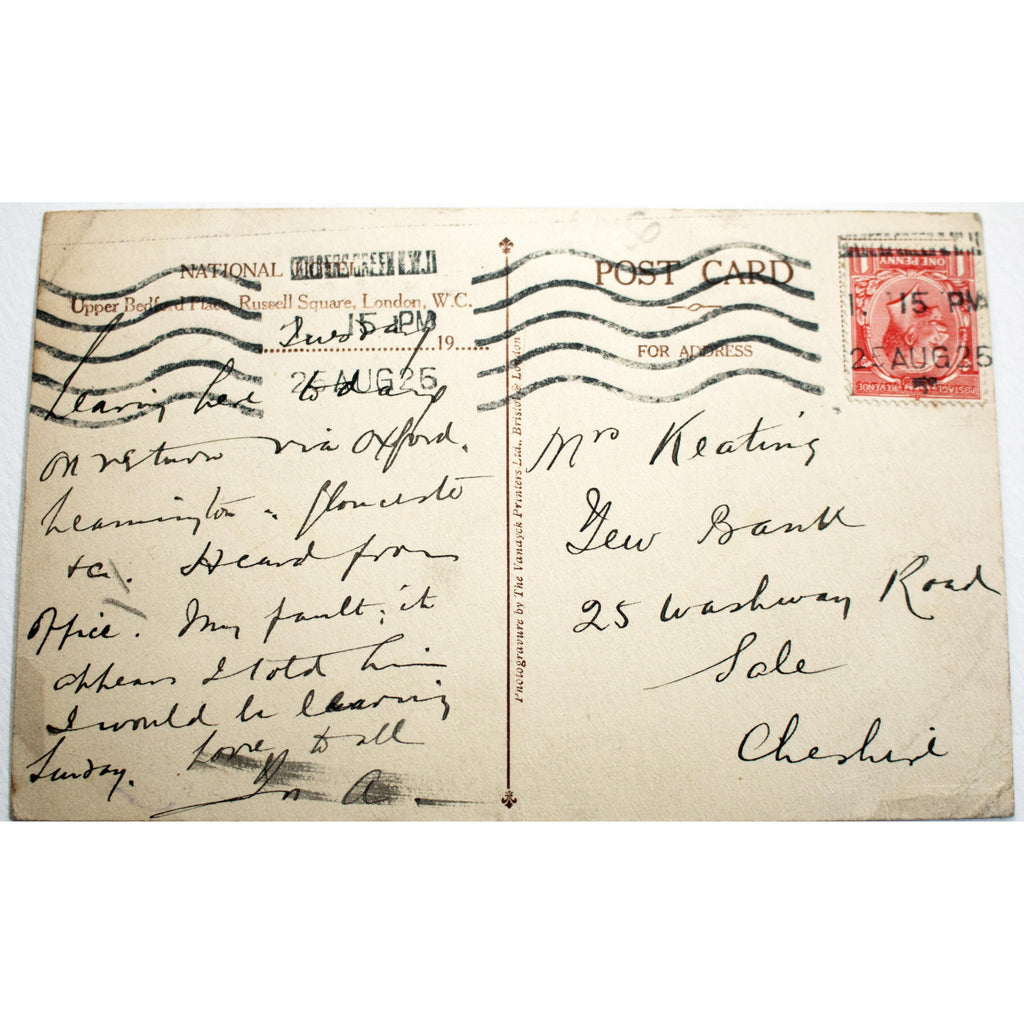 NATIONAL
Upper Bedford Place, Russell Square, London, W.C.
GOLDERS GREEN N.W.11
1. 15 PM
25 AUG 25
Tuesday 19
Leaving here to-day
on return via Oxford.
Leamington - Gloucester
&c. Heard from
Office. My fault; it
appears I told him
I would be leaving
Sunday. Love to all
A.
Photogravure by The Vandyck Printers Ltd., Bristol & London
POST CARD
FOR ADDRESS
Mrs Keating
Yew Bank
25 Washway Road
Sale
Cheshire
ONE PENNY
POSTAGE REVENUE
1. 15 PM
25 AUG 25